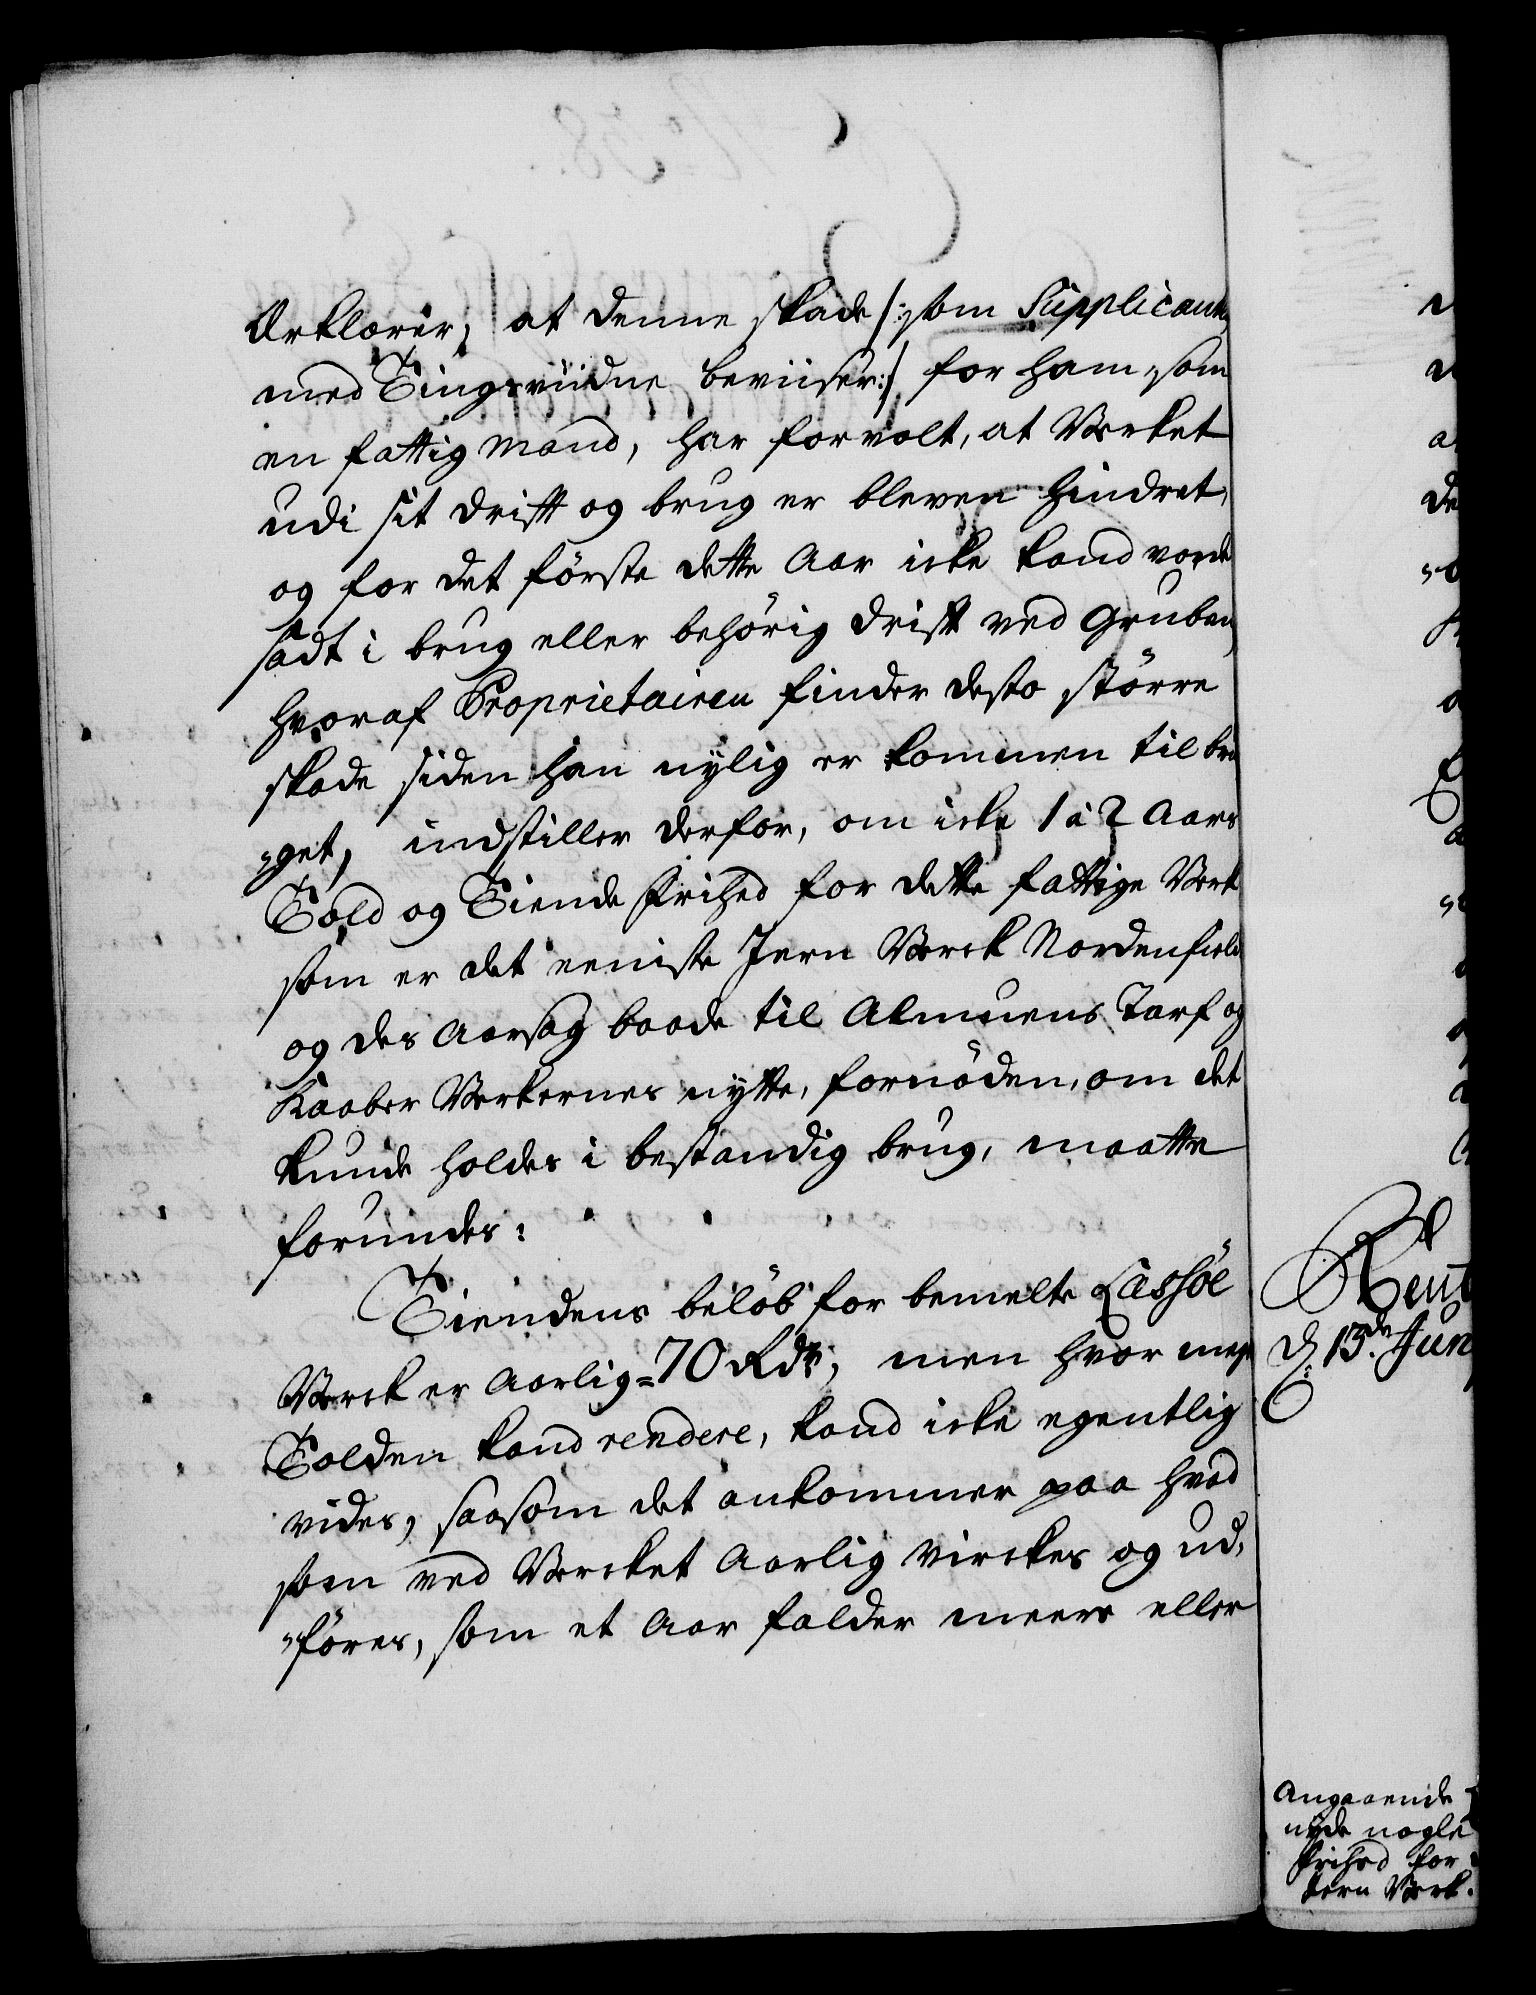 Erklærer, at denne skade /: som Supplicanten
med Tingsviidne beviiser :/ for ham, som
en fattig Mand, har forvolt, at Verket
udi sit drifft og brug er bleven hindret,
og for det förste dette Aar icke kand vorde
sadt i brug eller behörig drifft ved Gruben,
hvoraf Proprietairen finder desto större
skade siden han nylig er kommen til bru
„get, indstiller derfor, om icke 1 à 2 Aars
Told og Tiende frihed for dette fattige Verk
som er det eeniste Jern Verck Nordenfields
og des Aarsag baade til Almuens Tarf og
Kaaber Verkernes nytte, fornöden, om det
kunde holdes i bestandig brug, maatte
forundes:
Tiendens belöb for bemelte Lassöe
Verck er Aarlig = 70 Rdr, men hvor meget
Tolden kand rendere, kand icke egentlig
vides, saasom det ankommer paa hvad
som ved Vercket Aarlig virckes og ud,
„föres, som et Aar falder meere eller
Rent
d 13de Jun
Angaaende
nyde nogle
frihed for
Jern Verk.